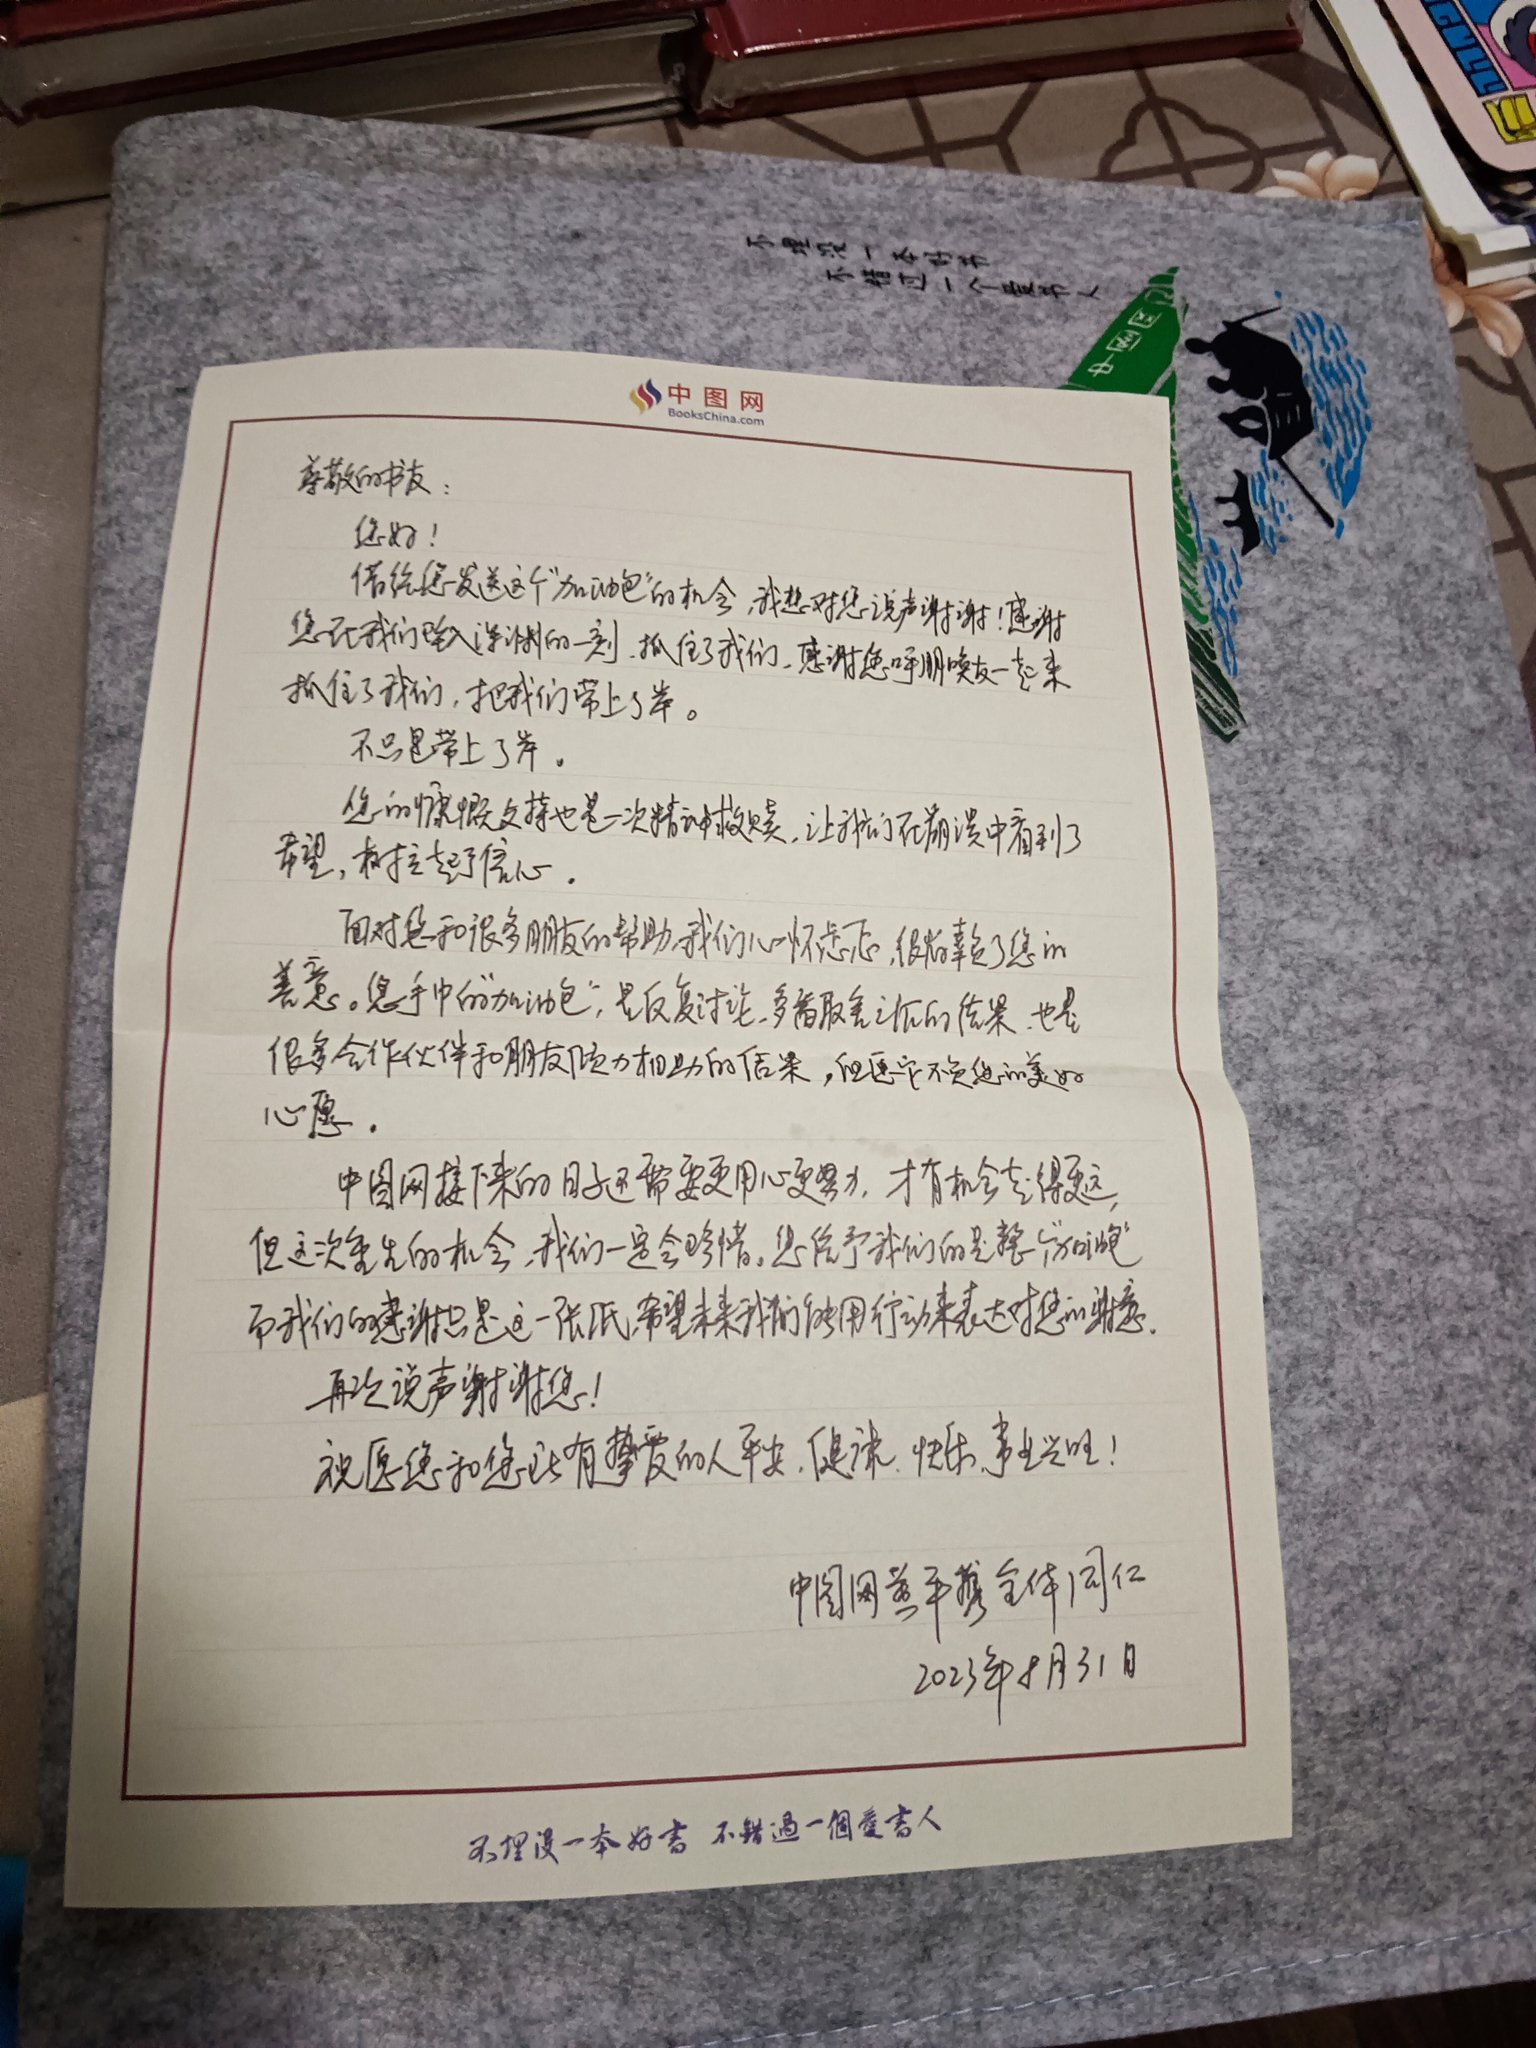 不埋没一本好书
不错过一个爱书人
中图网
中图网
BooksChina.com
尊敬的书友：
您好！
借给您发送这个“加油包”的机会，我想对您说声谢谢！感谢
您在我们坠入深渊的一刻，抓住了我们，感谢您呼朋唤友一起来
抓住了我们，把我们带上了岸。
不只是带上了岸。
您的慷慨支持也是一次精神救赎，让我们在崩溃中看到了
希望，树立起了信心。
面对您和很多朋友的帮助，我们心怀忐忑，很怕辜负了您的
善意。您手中的“加油包”，是反复讨论、多番取舍之后的结果，也是
很多合作伙伴和朋友倾力相助的结果，但愿它不负您的美好
心愿。
中图网接下来的日子还需要更用心更努力，才有机会走得更远，
但这次重生的机会，我们一定会珍惜。您给予我们的是整个“加油包”
而我们的感谢只是这一张纸，希望未来我们能够用行动来表达对您的谢意。
再次说声谢谢您！
祝愿您和您所有挚爱的人平安、健康、快乐、事业兴旺！
中图网黄平携全体同仁
2023年8月31日
不埋没一本好書 不錯過一個愛書人